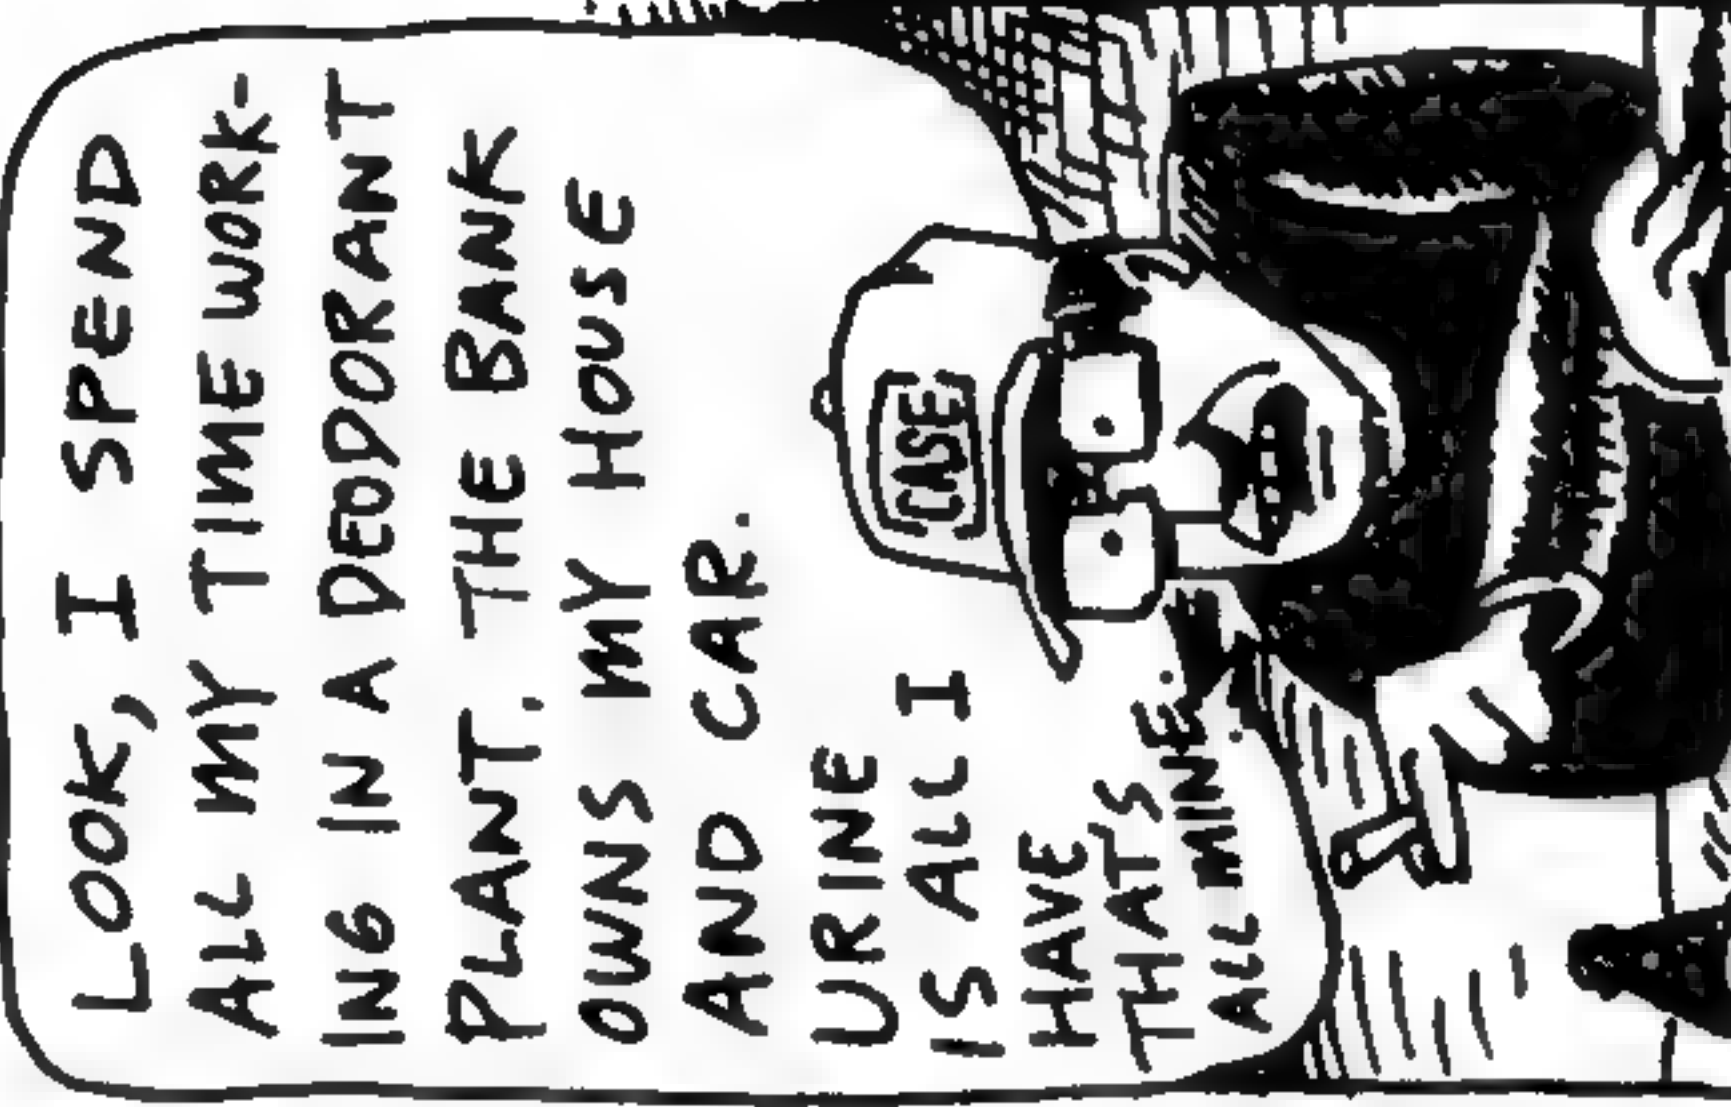 LOOK, I SPEND
ALL MY TIME WORK-
ING IN A DEODORANT
PLANT. THE BANK
OWNS MY HOUSE
AND CAR.
URINE
IS ALL I
HAVE
THATS
ALL MINE.
CASE